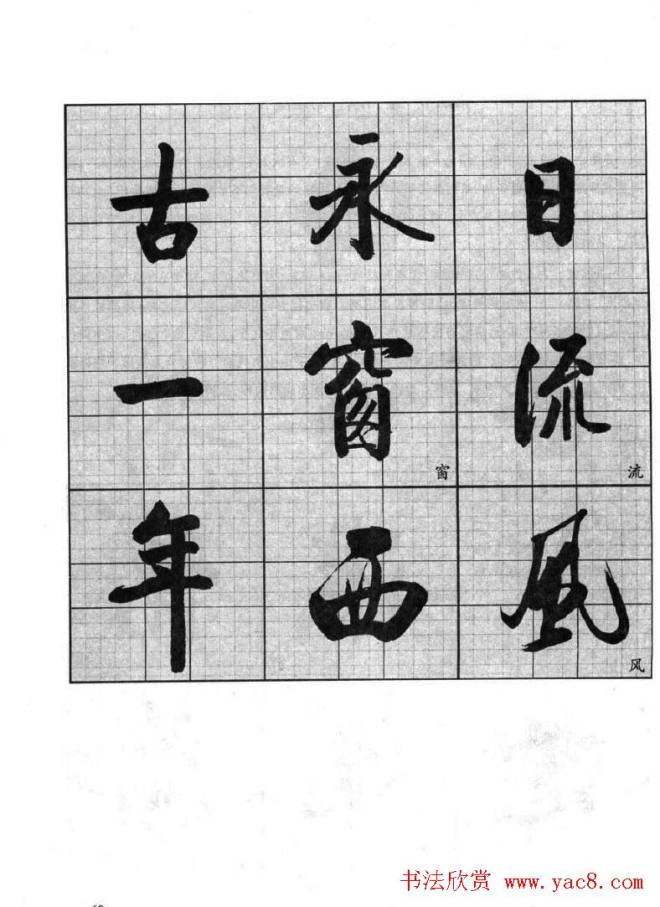 日流風
永窗西
古一年
流
风
窗
书法欣赏 www.yac8.com